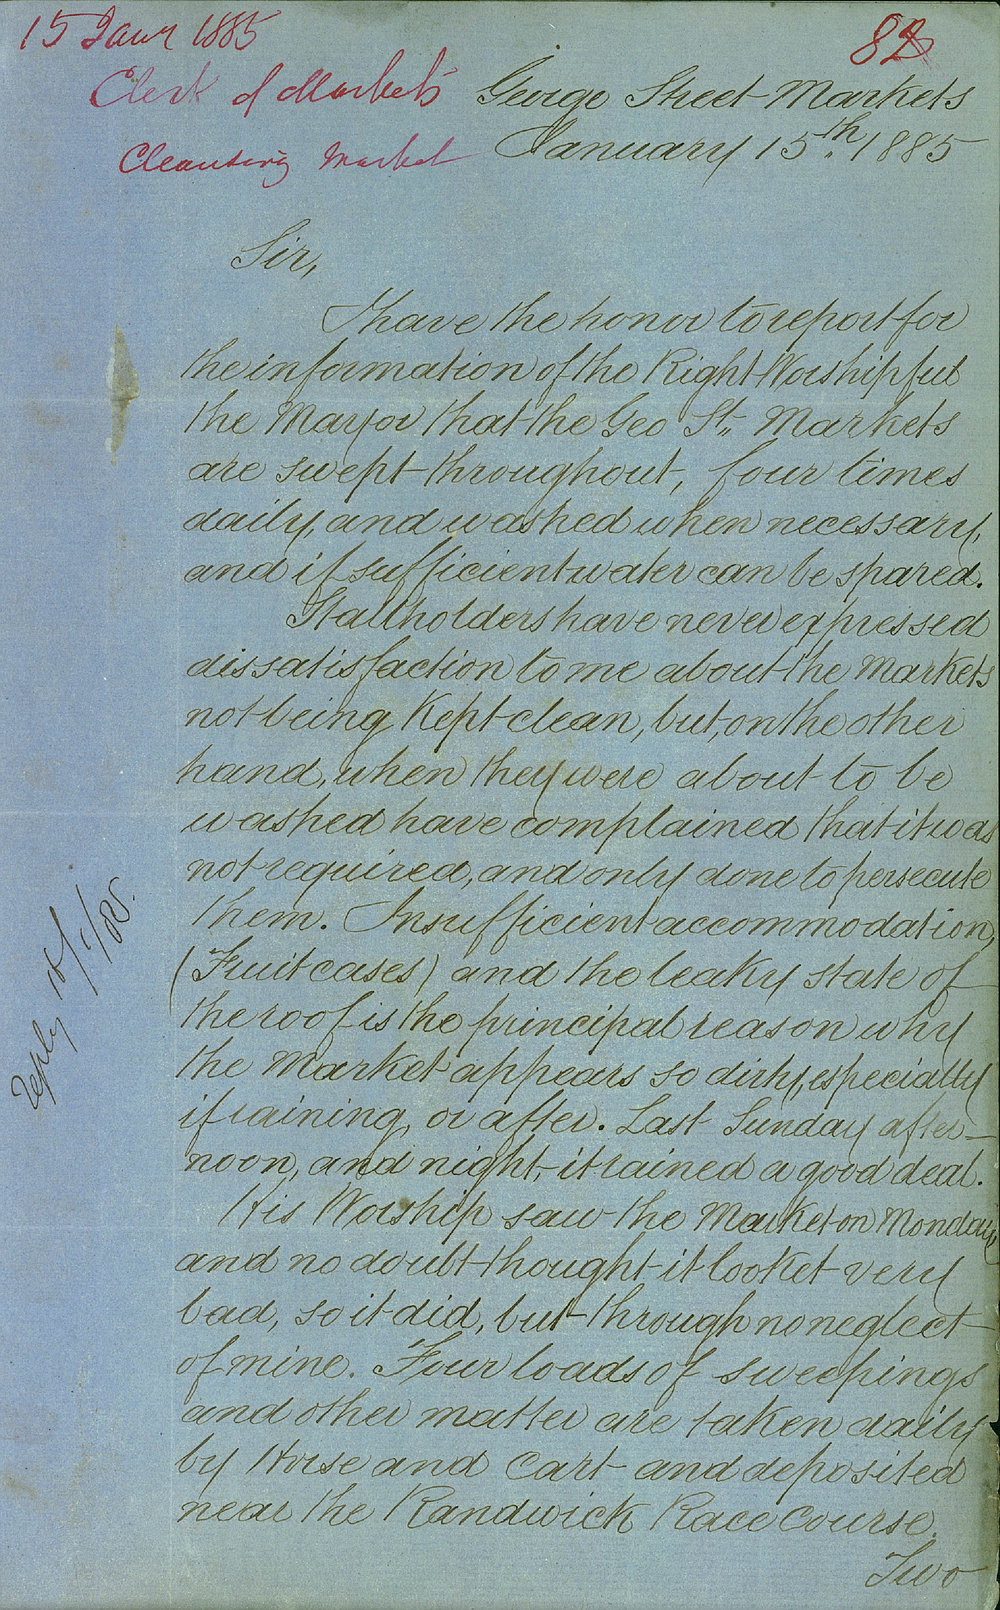 15 Jany 1885
82
Clerk of Markets
Cleansing Market
George Street Markets
January 15th 1885
Sir,
I have the honor to report for
the information of the Right Worshipful
the Mayor that the Geo St,, Markets
are swept throughout, four times
daily, and washed when necessary,
and if sufficient water can be spared.
Stallholders have never expressed
dissatisfaction to me about the Markets
not being Kept clean, but, on the other
hand, when they were about to be
washed have complained that it was
not required, and only done to persecute
them. Insufficient accommodation,
(Fruit cases) and the leaky state of
the roof is the principal reason why
the Market appears so dirty, especially
if raining, or after. Last Sunday after-
noon, and night, it rained a good deal.
His Worship saw the Market on Monday
and no doubt thought it looket very
bad, so it did, but through no neglect
of mine. Four loads of sweepings
and other matter are taken daily
by Horse and Cart and deposited
near the Randwick Race Course.
Two
Reply